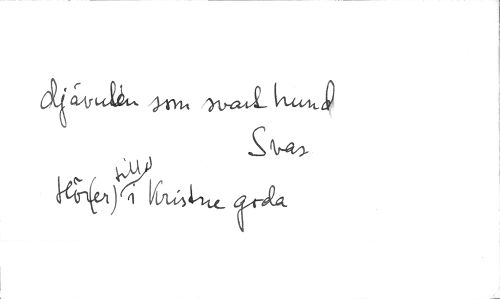 djävulen som svart hund
Svar
Hör(er) till i Kristne goda